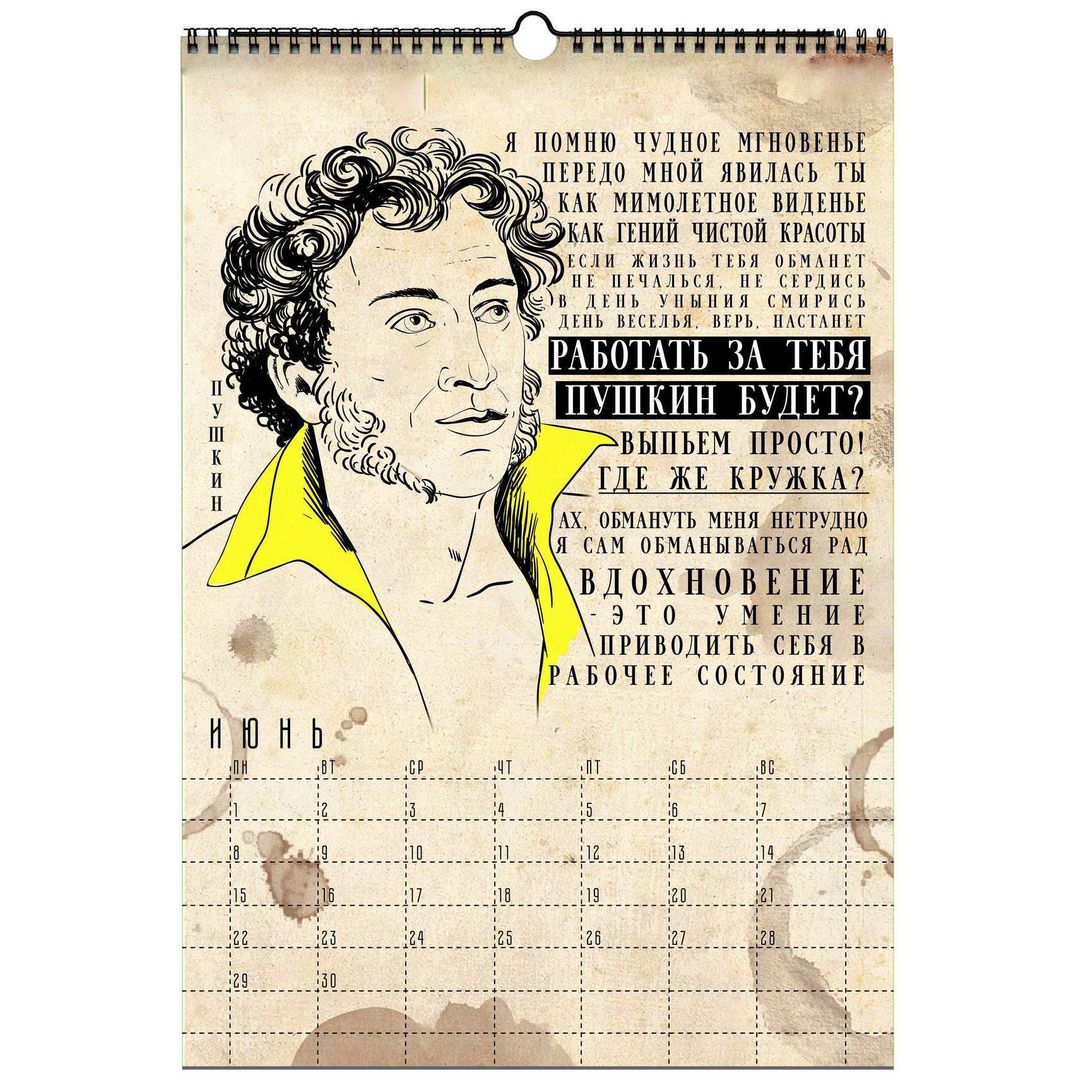 Я ПОМНЮ ЧУДНОЕ МГНОВЕНЬЕ
ПЕРЕДО МНОЙ ЯВИЛАСЬ ТЫ
КАК МИМОЛЕТНОЕ ВИДЕНЬЕ
КАК ГЕНИЙ ЧИСТОЙ КРАСОТЫ
ЕСЛИ ЖИЗНЬ ТЕБЯ ОБМАНЕТ
НЕ ПЕЧАЛЬСЯ, НЕ СЕРДИСЬ
В ДЕНЬ УНЫНИЯ СМИРИСЬ
ДЕНЬ ВЕСЕЛЬЯ, ВЕРЬ, НАСТАНЕТ
РАБОТАТЬ ЗА ТЕБЯ
ПУШКИН БУДЕТ?
ВЫПЬЕМ ПРОСТО!
ГДЕ ЖЕ КРУЖКА?
АХ, ОБМАНУТЬ МЕНЯ НЕТРУДНО
Я САМ ОБМАНЫВАТЬСЯ РАД
ВДОХНОВЕНИЕ
- ЭТО УМЕНИЕ
ПРИВОДИТЬ СЕБЯ В
РАБОЧЕЕ СОСТОЯНИЕ
ПУШКИН
ИЮНЬ
ПН ВТ СР ЧТ ПТ СБ ВС
1 2 3 4 5 6 7
8 9 10 11 12 13 14
15 16 17 18 19 20 21
22 23 24 25 26 27 28
29 30